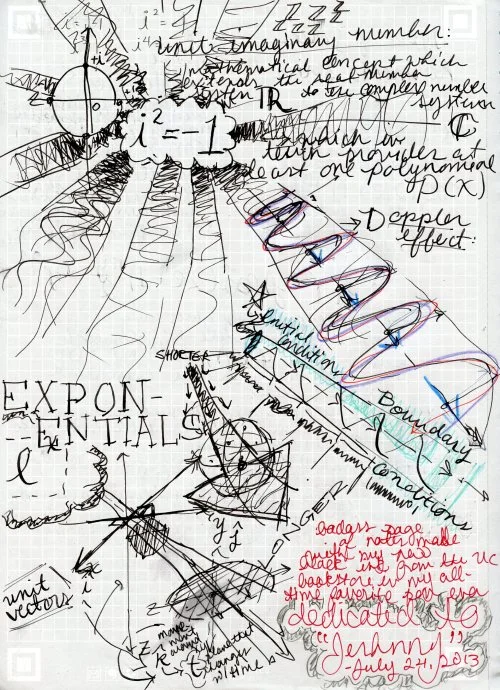 i² = 
i⁴
ZZZ
unit imaginary number:
mathematical concept which
extends the real number
system ℝ to the complex number
system ℂ
+i
i² = -1
which in
turn provides at
least one polynomial
P(x)
Doppler
effect:
Initial
Conditions
SHORTER
Boundary
Conditions
LONGER
EXPON-
ENTIALS
eˣ
y
ĵ
unit
vectors
x
i
z
k
t
time
changes
w/ time
badass page
of notes made
with my new
black ink from the UC
bookstore in my all-
time favorite pen ever
dedicated to
"Johnny"
-July 24, 2013